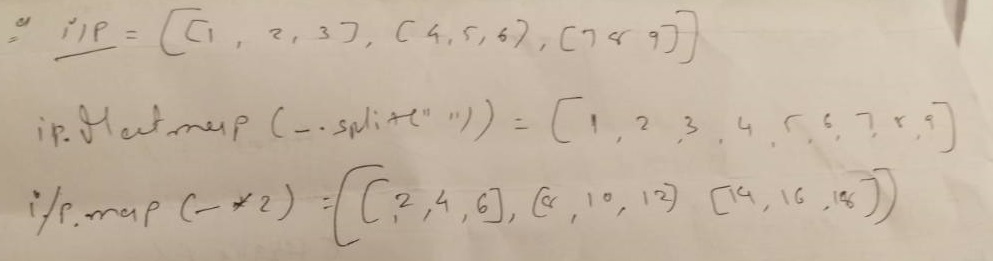 i/p = [[1, 2, 3], [4, 5, 6], [7 8 9]]
ip.flatmap (_.split(" ")) = [1, 2, 3, 4, 5, 6, 7, 8, 9]
i/p.map (_*2) = [[2, 4, 6], [8, 10, 12] [14, 16, 18]]